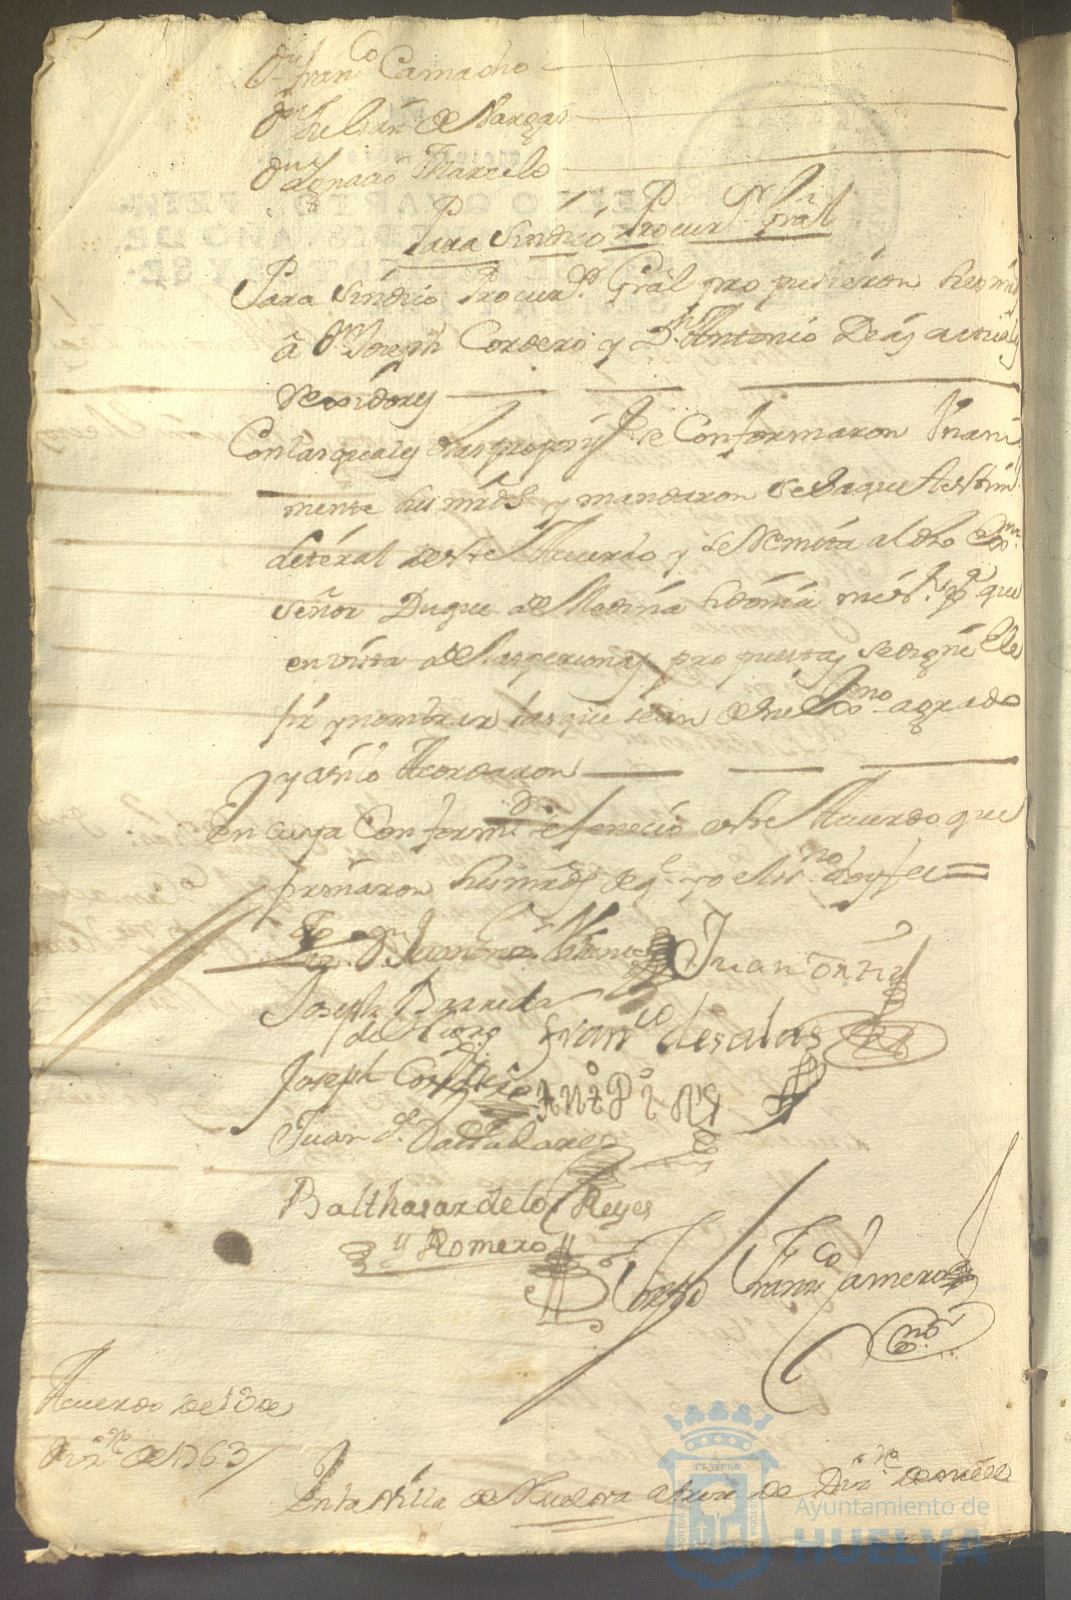 Dn. Franco. Camacho
Dn. Julian de Vargas
Dn. Ignacio Marcelo
Para Sindico Procurr. Gral
Para Sindico Procurr. Gral propusieron sus mrds
â Dn. Joseph Cordero y Dn. Antonio Pinz actuales
rexidores
Con las quales propuestas se Conformaron Vnani
mente sus mrds y mandaron se saque testim.
literal de este Acuerdo y se Remita al dho Exmo.
Señor Duque de Medina Sidonia mi sr. pa. que
en vista de las personas propuestas se digne Ele
jir y nombrar las que sean de su Exno. agrado
y assi lo Acordaron
En cuya Conformd. se feneció este Acuerdo que
firmaron sus mrds de q. yo el Scrno. doy fee
Lizdo. Dn. Juan
Juan Ortiz
Joseph Barreda
de Hiero
Franco de salas
Joseph Cordero
Juan de Valladares
Balthasar delos Reyes
y Romero
Diego Franco Camero
Sno.
Acuerdo de 13 de
Dizre. de 1763
En la Villa de Huelva a trece de Dizre. de mil
Ayuntamiento de
HUELVA